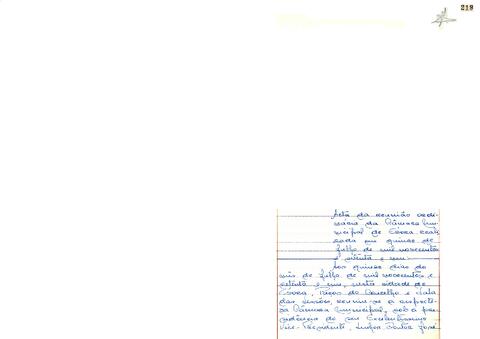 218
Acta da reunião ordi-
nária da Câmara Mu-
nicipal de Évora reali-
zada em quinze de
Julho de mil novecentos
e setenta e um.
Aos quinze dias do
mês de Julho de mil novecentos e
setenta e um, nesta cidade de
Évora, Paços do Concelho e Sala
das Sessões, reuniu-se a respecti-
va Câmara Municipal, sob a pre-
sidência do seu Excelentíssimo
Vice-Presidente, Senhor José